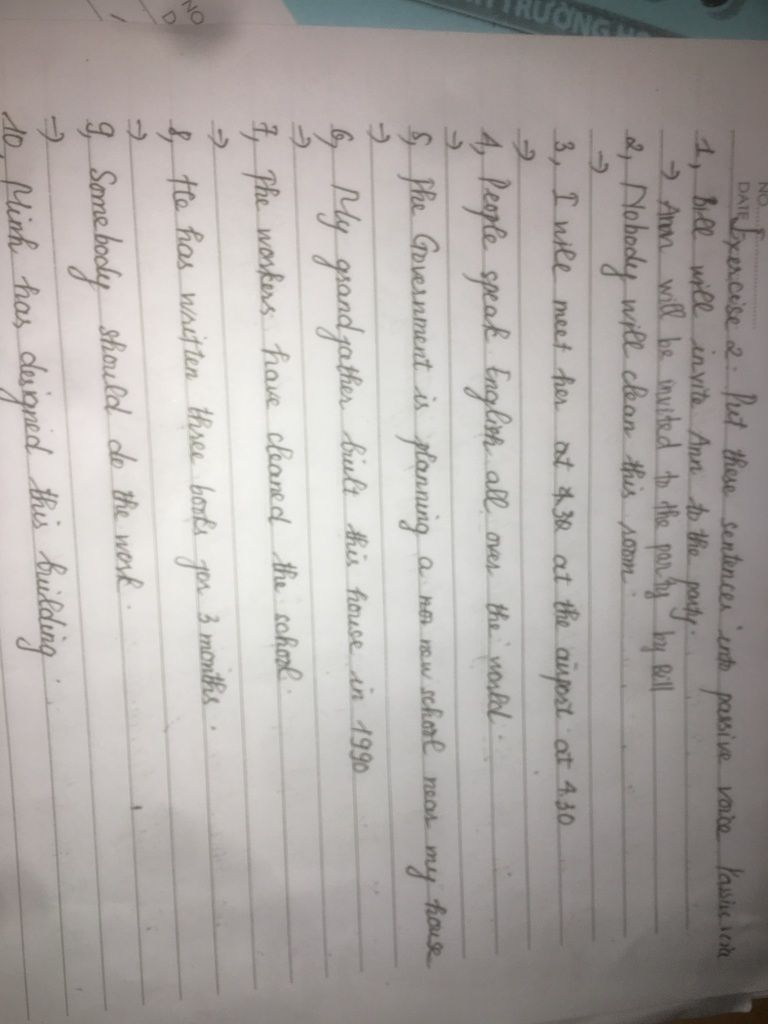 TRƯỜNG
NO
D
NO.
DATE
Exercise 2: Put these sentences into passive voice
1, Bill will invite Ann to the party.
→ Ann will be invited to the party by Bill
2, Nobody will clean this room.
→
3, I will meet her at 4.30 at the airport at 4.30
→
4, People speak English all over the world.
→
5, The Government is planning a new school near my house
→
6, My grandfather built this house in 1990
→
7, The workers have cleaned the school.
→
8, He has written three books for 3 months.
→
9, Somebody should do the work.
→
10, Minh has designed this building.